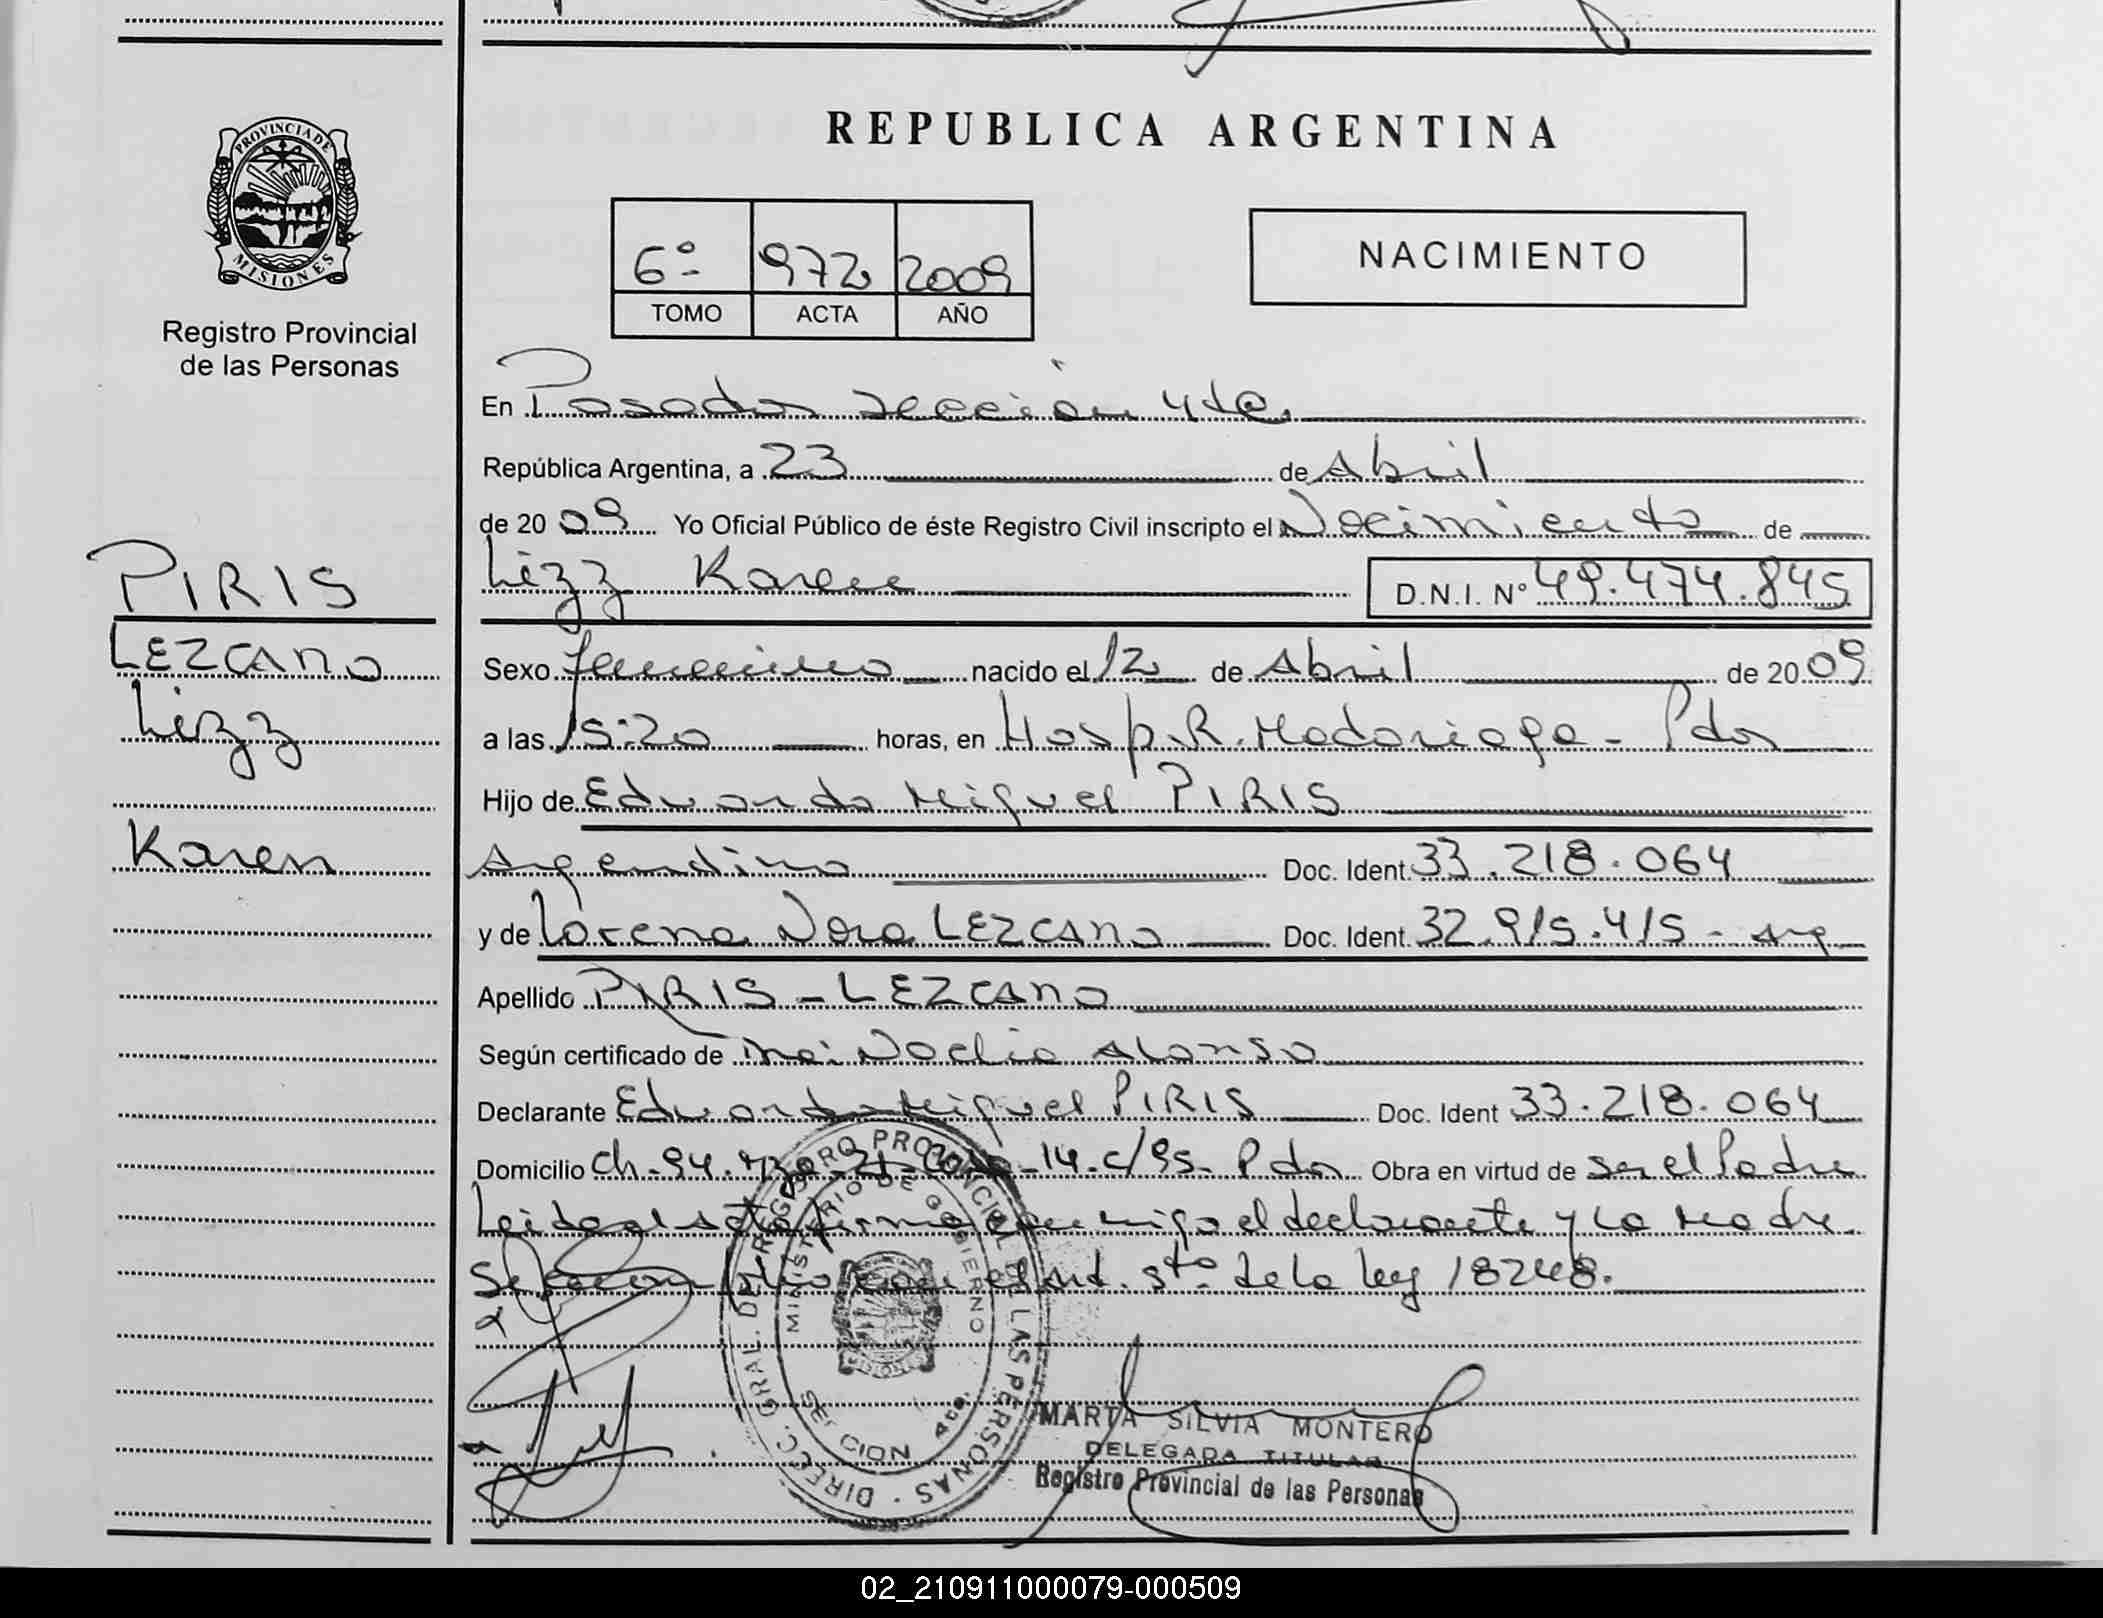 PROVINCIA DE
MISIONES
Registro Provincial
de las Personas
PIRIS
LEZCANO
Lizz
Karen
REPUBLICA ARGENTINA
6º 972 2009
TOMO ACTA AÑO
NACIMIENTO
En Posadas sección 4ta.
República Argentina, a 23 de Abril
de 20 09 Yo Oficial Público de éste Registro Civil inscripto el Nacimiento de
Lizz Karen D.N.I. Nº 49.474.845
Sexo femenino nacido el 12 de Abril de 20 09
a las 15:20 horas, en Hosp. R. Madariaga - Pdas
Hijo de Eduardo Miguel PIRIS
Argentino Doc. Ident. 33.218.064
y de Lorena Nora LEZCANO Doc. Ident. 32.915.415 - Arg
Apellido PIRIS - LEZCANO
Según certificado de Noelia Alonso
Declarante Eduardo Miguel PIRIS Doc. Ident 33.218.064
Domicilio Ch. 94. Mza. 14. c/95. Pdas Obra en virtud de ser el Padre
Leida el acta firma conmigo el declarante y la madre
de la ley 18248.
DIRECC. GRAL. DEL REGISTRO PROVINCIAL DE LAS PERSONAS
MINISTERIO DE GOBIERNO
SECCION 4ta.
MARTA SILVIA MONTERO
DELEGADA TITULAR
Registro Provincial de las Personas
02_210911000079-000509